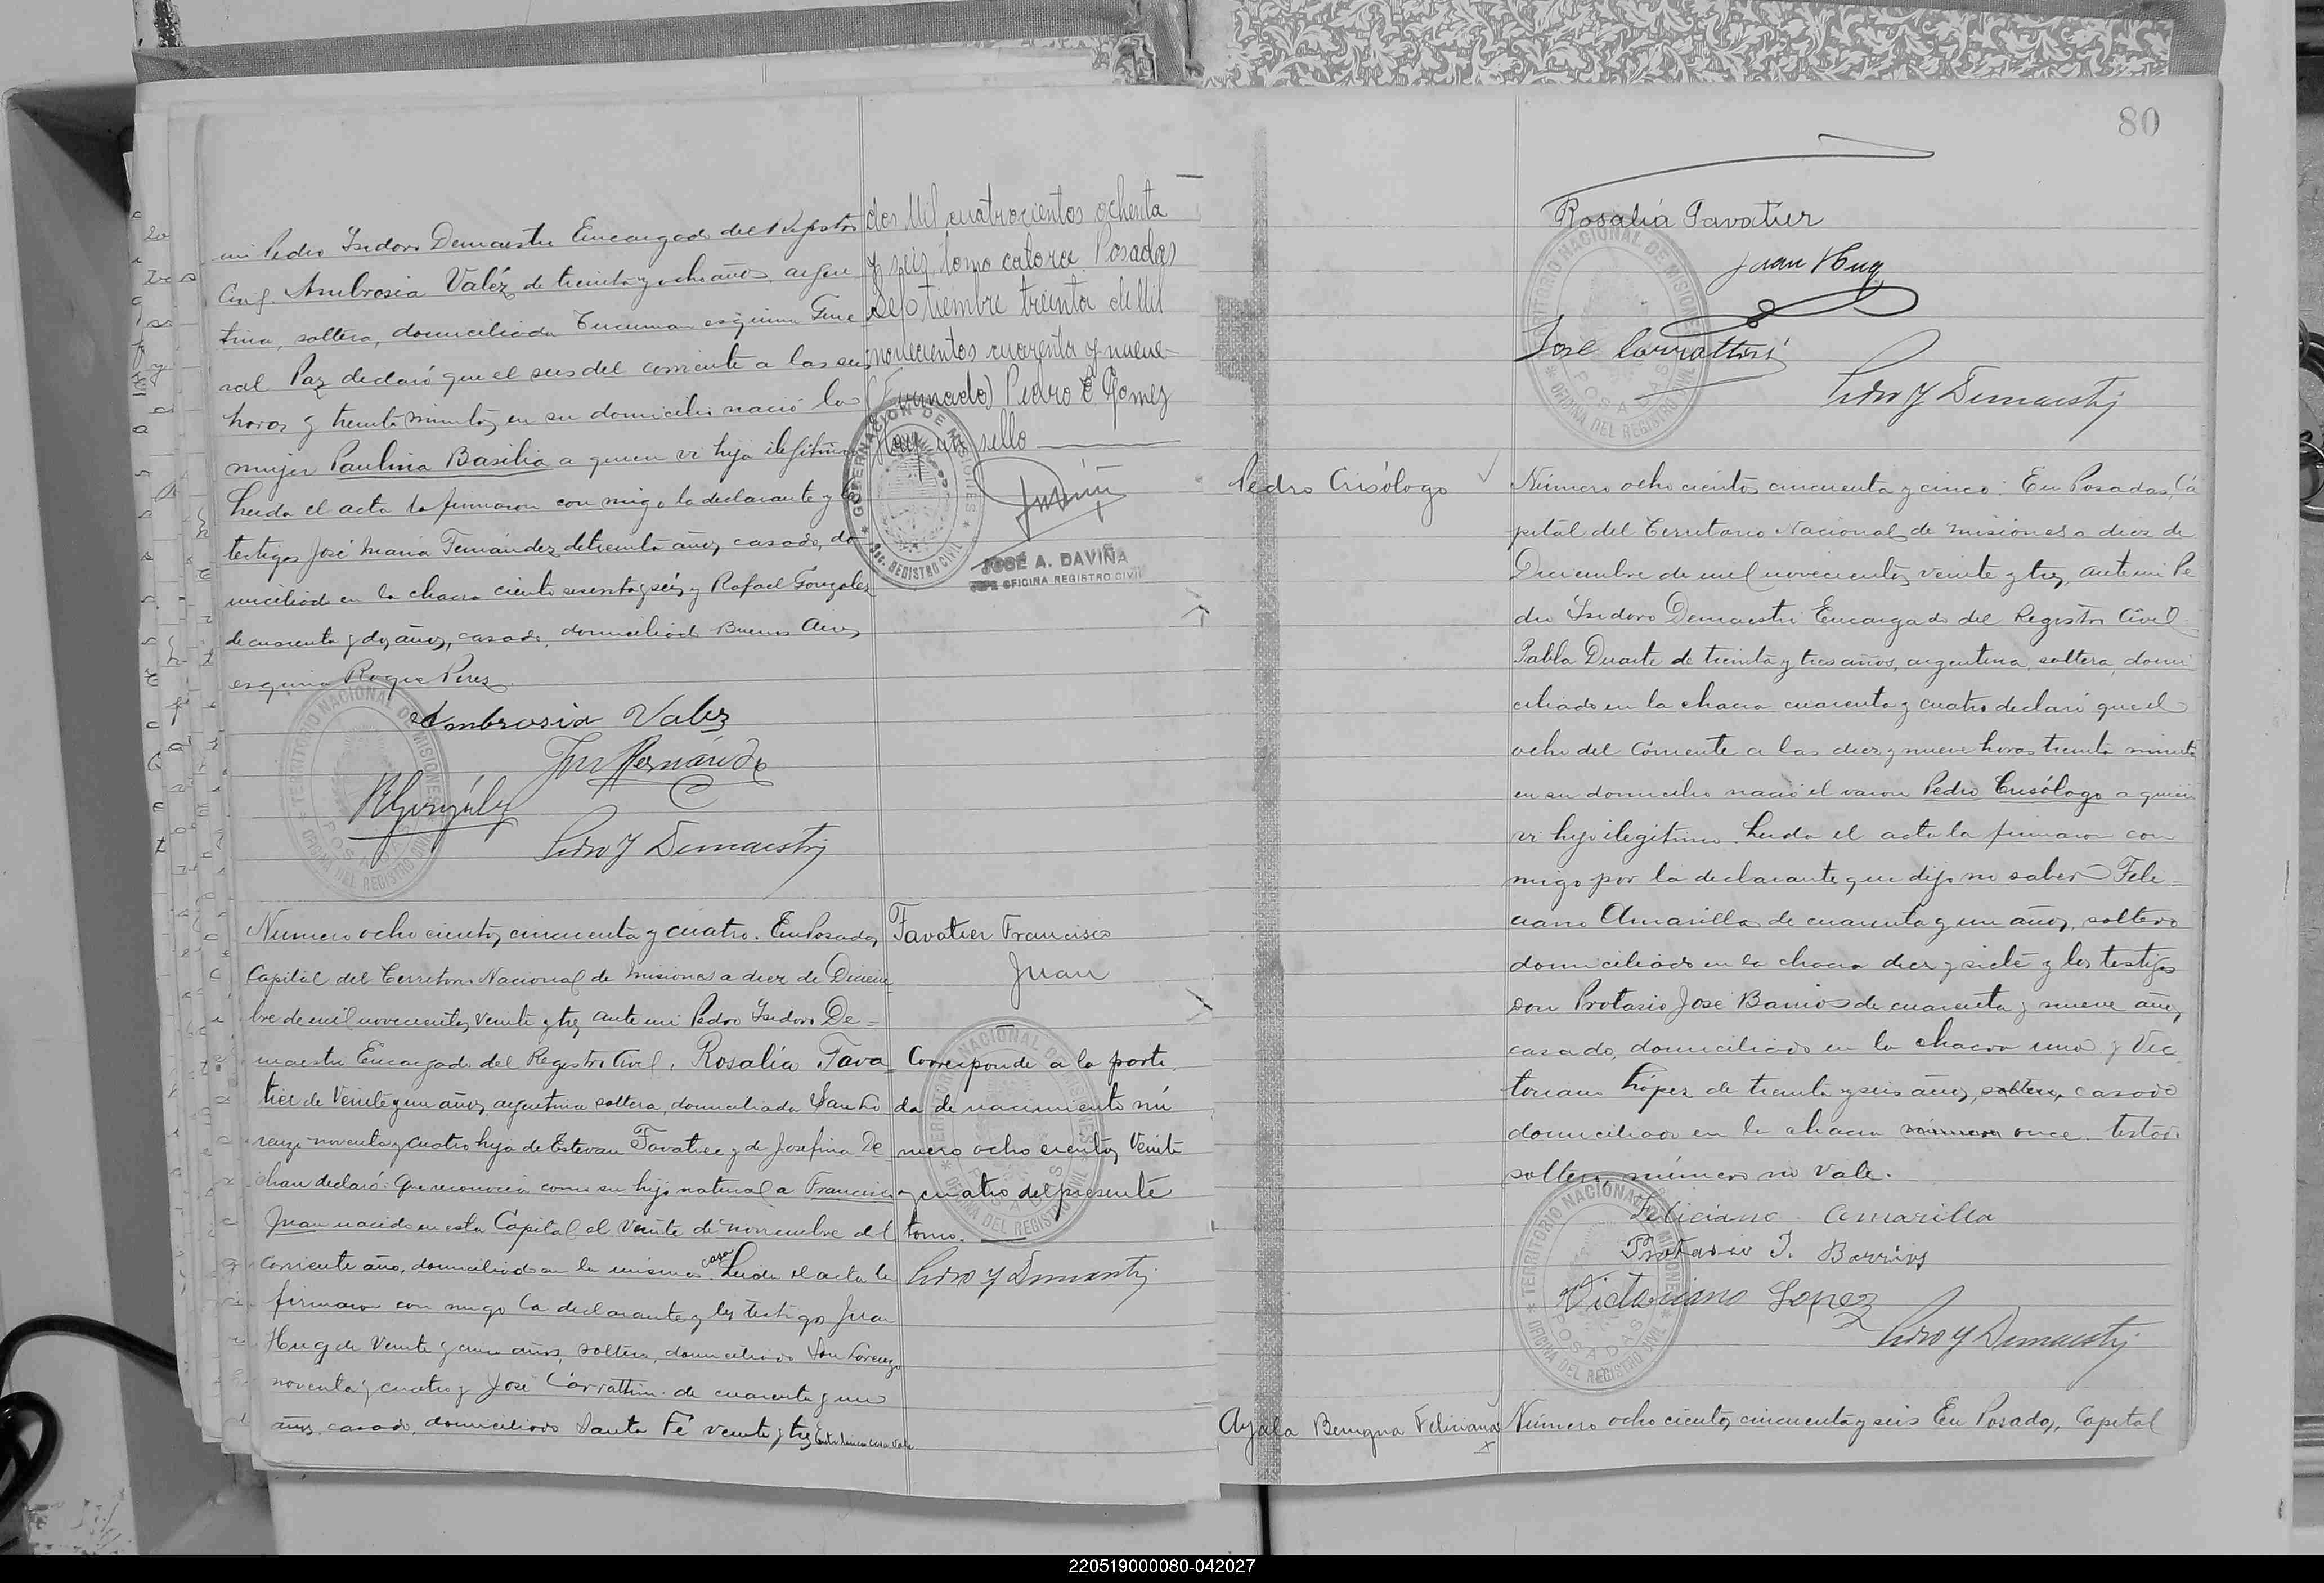 mi Pedro Isidoro Demaestri Encargado del Registro
Civil. Ambrosia Valéz de treinta y ocho años, argen
tina, soltera, domiciliada Tucuman esquina Gene
ral Paz declaró que el seis del corriente a las seis
horas y treinta minutos en su domicilio nació la
mujer Paulina Basilia a quien vi hija ilegítima
Leida el acta la firmaron con migo la declarante y los
testigos José Maria Fernández de treinta años, casado, do
miciliado en la chacra ciento sesenta y seis y Rafael González
de cuarenta y dos años, casado, domiciliado Buenos Aires
esquina Roque Perez.
Ambrosia Valez
José Fernández
R González
Pedro Y Demaestri
TERRITORIO NACIONAL DE MISIONES
POSADAS
OFICINA DEL REGISTRO CIVIL
dos Mil cuatrocientos ochenta
y seis tomo catorce Posadas
Septiembre treinta de Mil
novecientos cuarenta y nueve
(Firmado) Pedro E. Gomez
Hay un sello
GOBERNACION DE MISIONES
REGISTRO CIVIL
JOSÉ A. DAVIÑA
JEFE OFICINA REGISTRO CIVIL
Número ocho cientos cincuenta y cuatro. En Posadas,
Capital del Territorio Nacional de Misiones a diez de Diciem
bre de mil novecientos veinte y tres ante mi Pedro Isidoro De=
maestri Encargado del Registro Civil, Rosalía Tava
tier de Veinte y un años, argentina soltera, domiciliada San Lo
renzo noventa y cuatro hija de Estevan Tavatier y de Josefina De
chan declaró: Que reconocía como su hijo natural a Francisco
Juan nacido en esta Capital el veinte de noviembre del
corriente año, domiciliado en la misma casa. Leida el acta la
firmaron con migo la declarante y los testigos Juan
Hug de Veinte y cinco años, soltero, domiciliado San Lorenzo
noventa y cuatro y José Corrattini de cuarenta y un
años, casado, domiciliado Santa Fé veinte y tres Entre linea casa vale
Tavatier Francisco
Juan
Corresponde a la parti
da de nacimiento nú
mero ocho cientos veinte
y cuatro del presente
tomo.
Pedro Y Demaestri
80
Rosalía Tavatier
Juan Hug
José Corrattini
Pedro Y Demaestri
TERRITORIO NACIONAL DE MISIONES
POSADAS
OFICINA DEL REGISTRO CIVIL
Pedro Crisólogo
Número ocho cientos cincuenta y cinco. En Posadas, Ca
pital del Territorio Nacional de Misiones a diez de
Diciembre de mil novecientos veinte y tres, ante mi Pe
dro Isidoro Demaestri Encargado del Registro Civil.
Pabla Duarte de treinta y tres años, argentina, soltera, domi
ciliada en la chacra cuarenta y cuatro declaró que el
ocho del corriente a las diez y nueve horas treinta minutos
en su domicilio nació el varon Pedro Crisólogo a quien
vi hijo ilegítimo. Leida el acta la firmaron con
migo por la declarante que dijo no saber Feli=
ciano Amarilla de cuarenta y un años, soltero
domiciliado en la chacra diez y siete y los testigos
Don Protasio José Barrios de cuarenta y nueve años,
casado, domiciliado en la chacra una y Vic
toriano López de treinta y seis años, soltero, casado
domiciliado en la chacra número once. Testado
soltero, número no vale.
Feliciano Amarilla
Protasio J. Barrios
Victoriano Lopez
Pedro Y Demaestri
TERRITORIO NACIONAL DE MISIONES
POSADAS
OFICINA DEL REGISTRO CIVIL
Ayala Benigna Feliciana
Número ocho cientos cincuenta y seis En Posadas, Capital
220519000080-042027